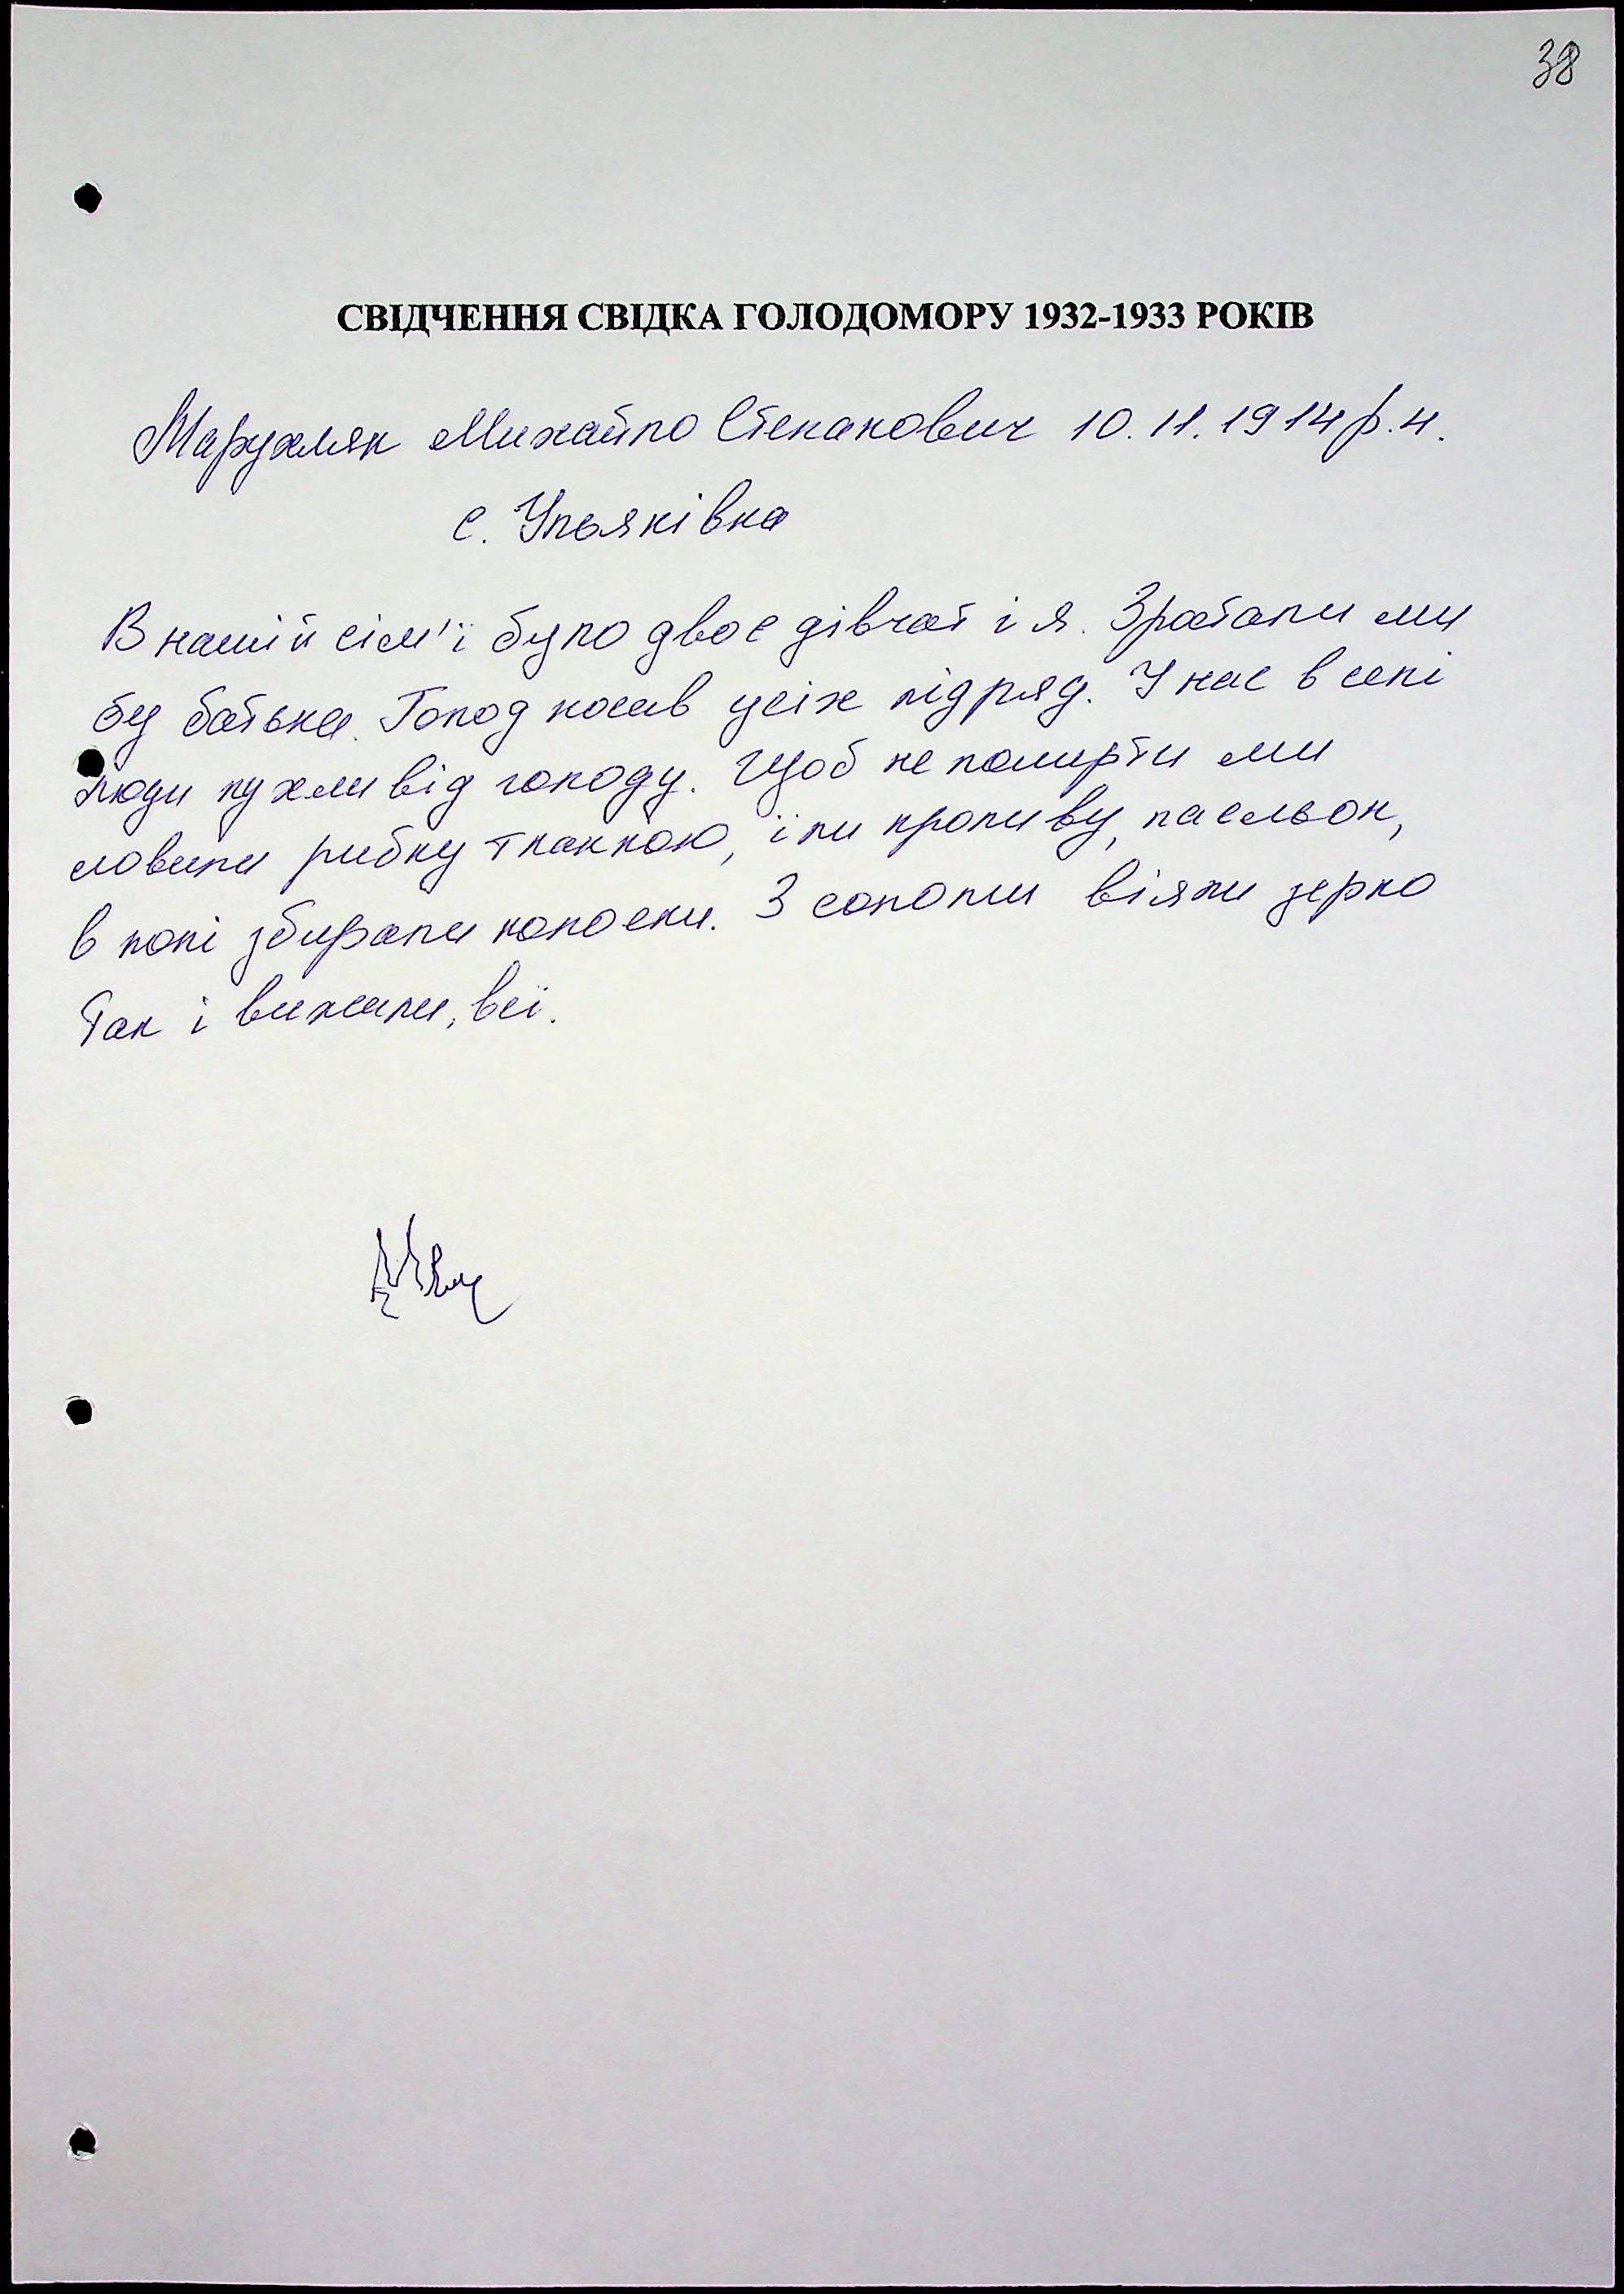 38
СВІДЧЕННЯ СВІДКА ГОЛОДОМОРУ 1932-1933 РОКІВ
Марухляк Михайло Степанович 10.11.1914 р.н.
с. Ульянівка
В нашій сім'ї було двоє дівчат і я. Зростали ми
бу батька. Голод косив усіх підряд. У нас в селі
люди пухли від голоду. Щоб не померти ми
ловили рибку тканкою, їли кропиву, пасльон,
в полі збирали колоски. З соломи віяли зерно
Так і вижили, всі.